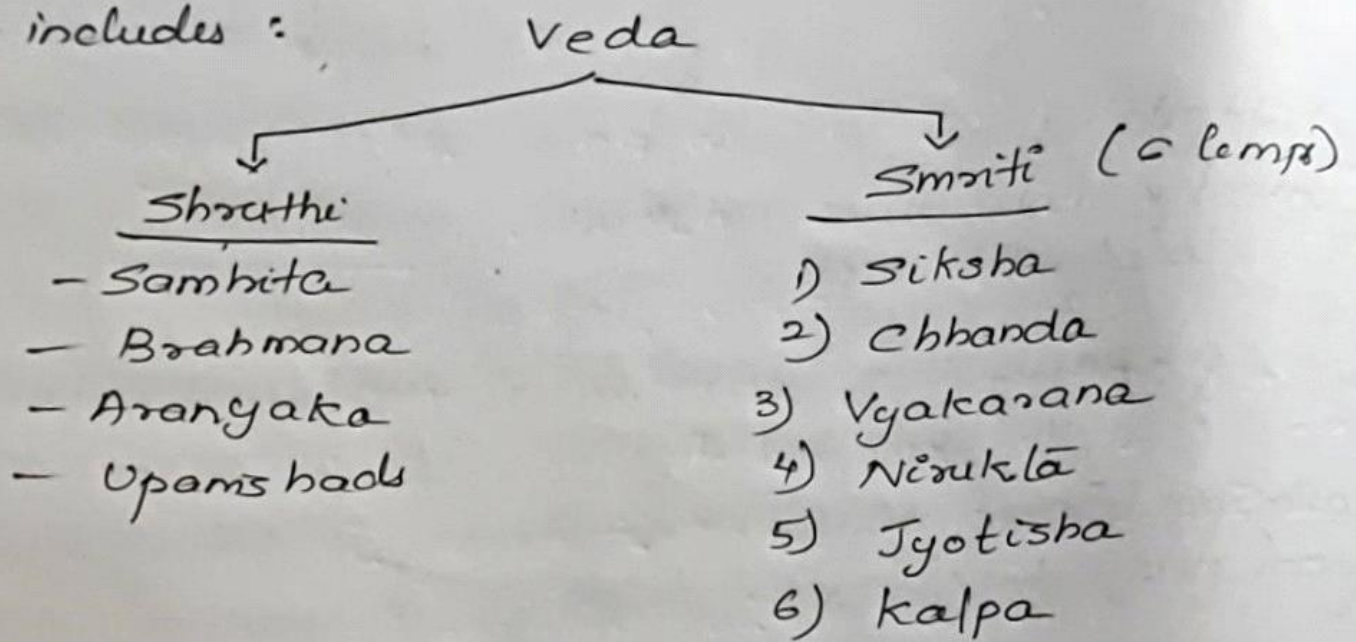 includes :
Veda
Shruthi
- Samhita
- Brahmana
- Aranyaka
- Upanishads
Smriti
1) Siksha
2) Chhanda
3) Vyakarana
4) Nirukta
5) Jyotisha
6) Kalpa